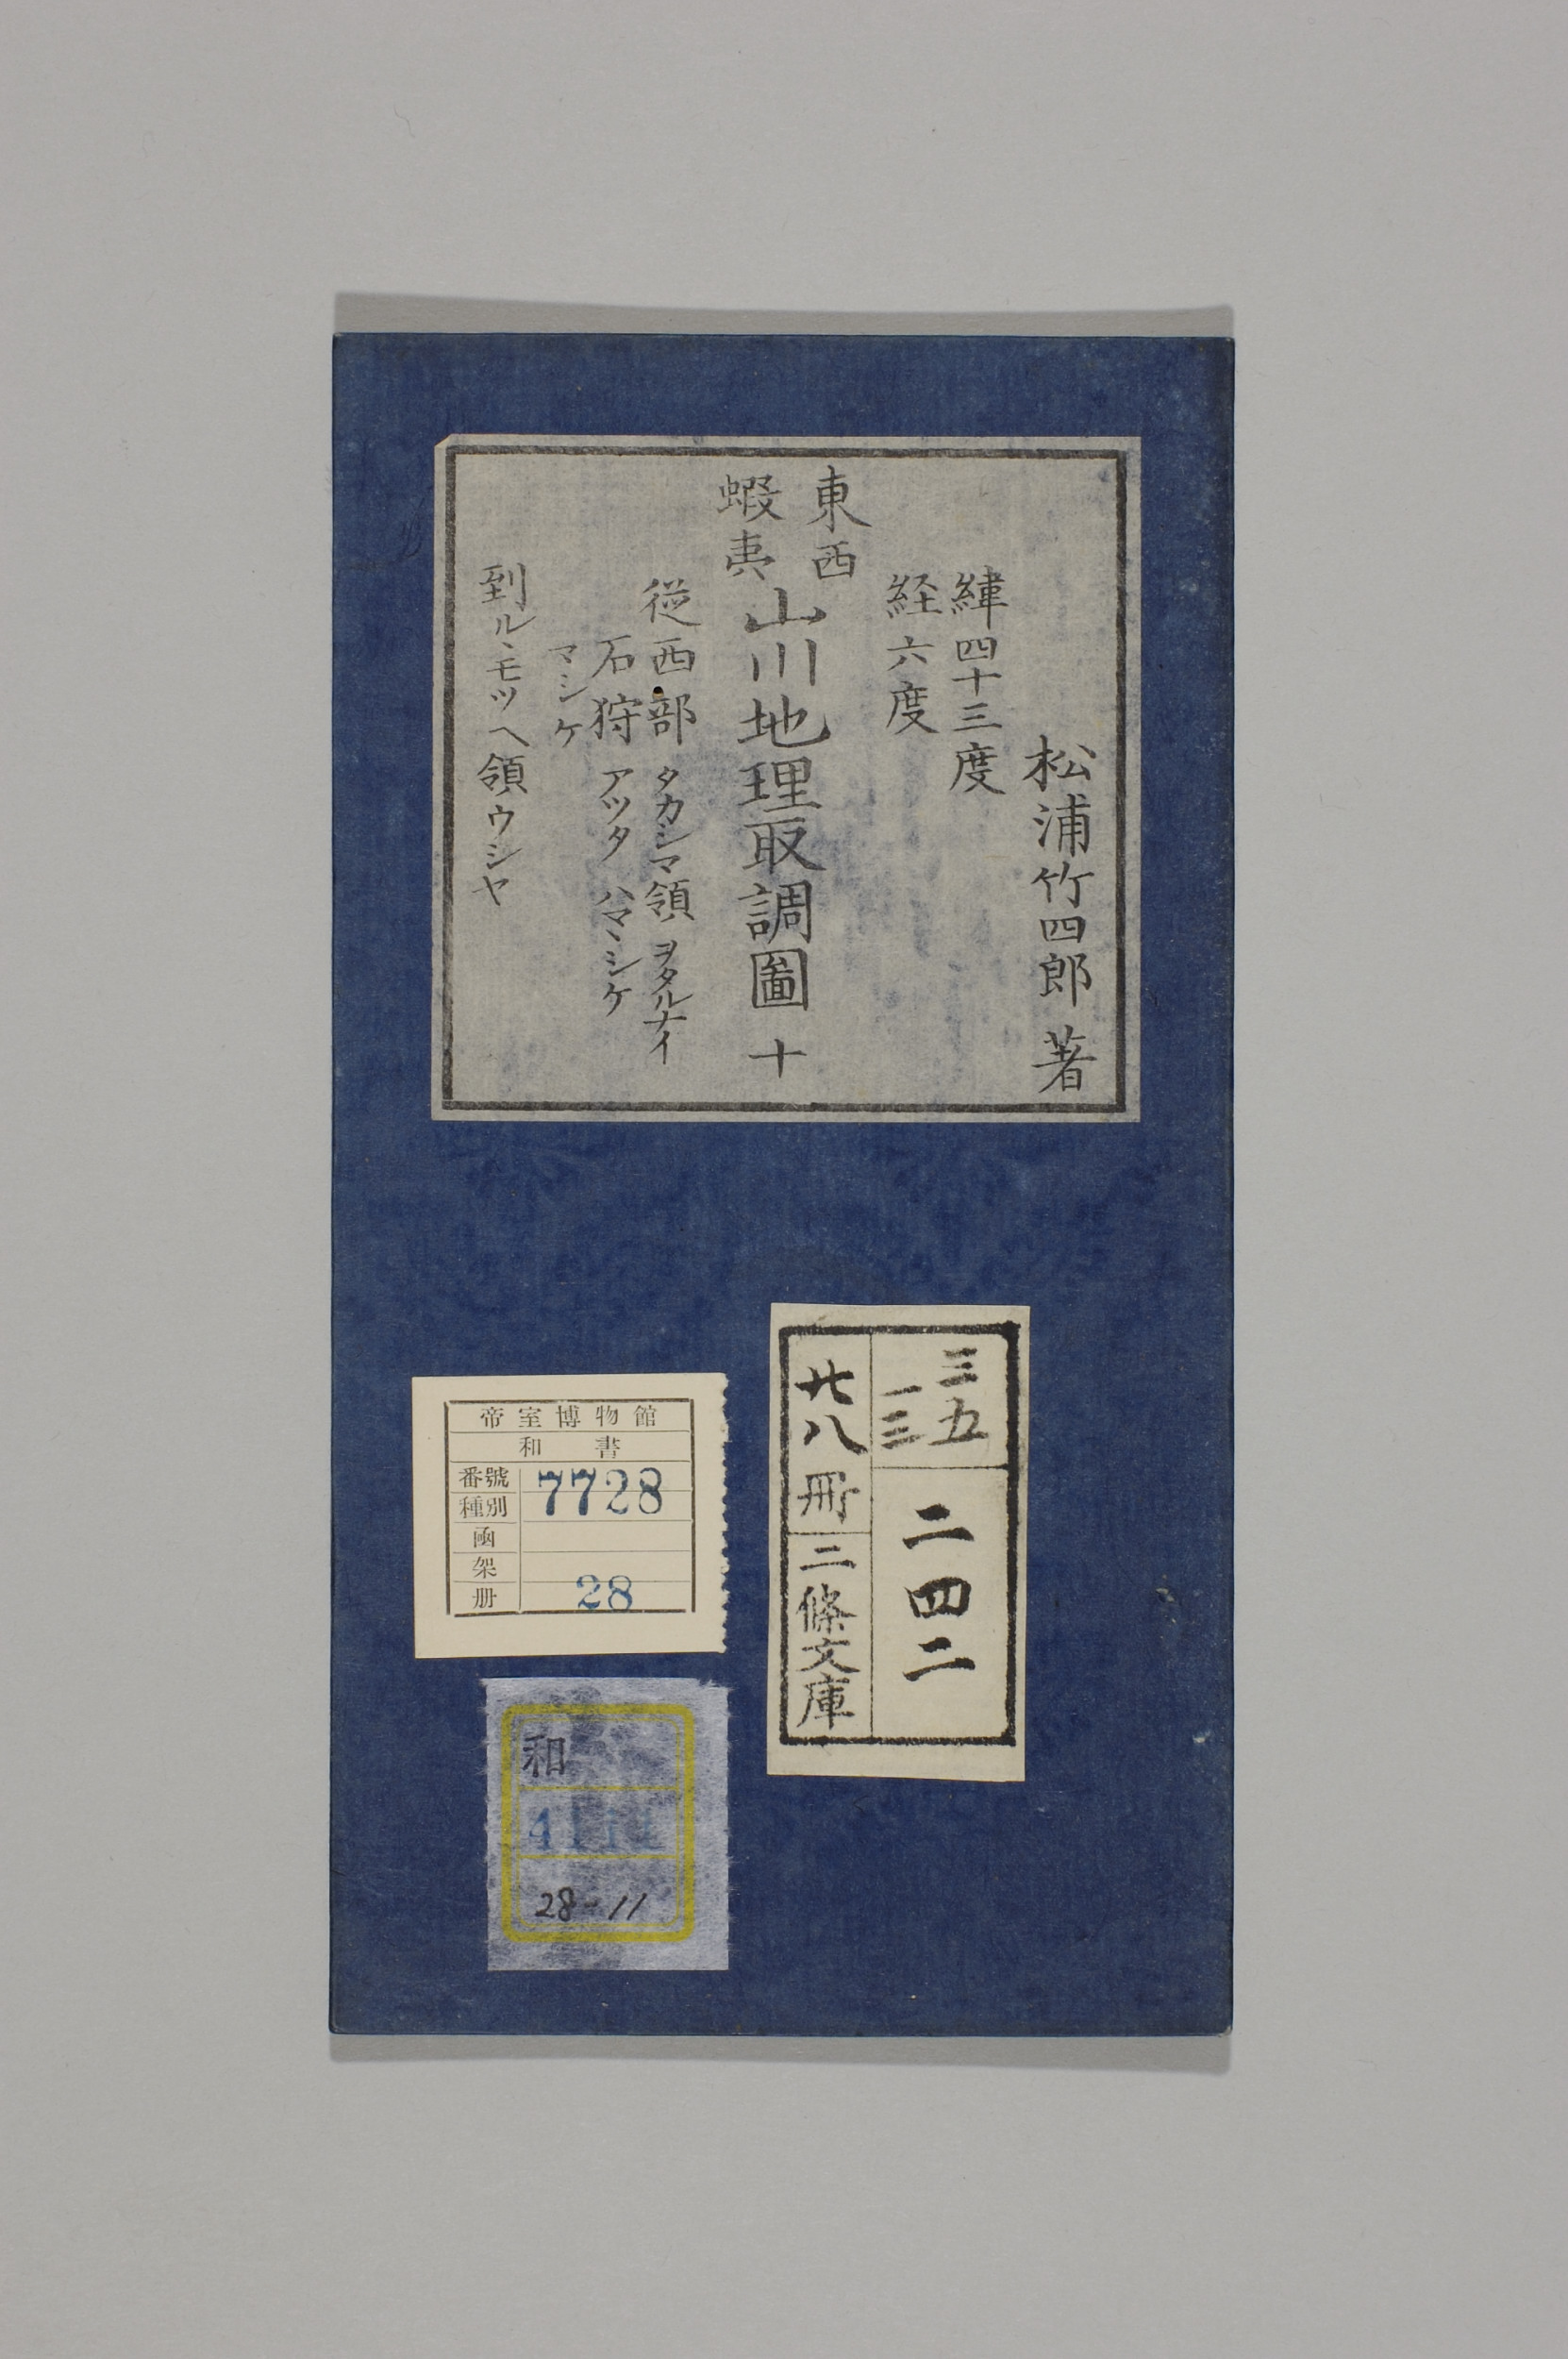 松浦竹四郎 著
緯四十三度
経六度
東西
蝦夷
山川地理取調圖 十
従西部 タカシマ領 ヲタルナイ
石狩 アツタ ハマヽシケ
マシケ
到ルヽモツヘ領ウシヤ
三五
一三
二四二
廿八冊
二條文庫
帝室博物館
和書
番號 7728
種別
凾
架
册 28
和
28-11